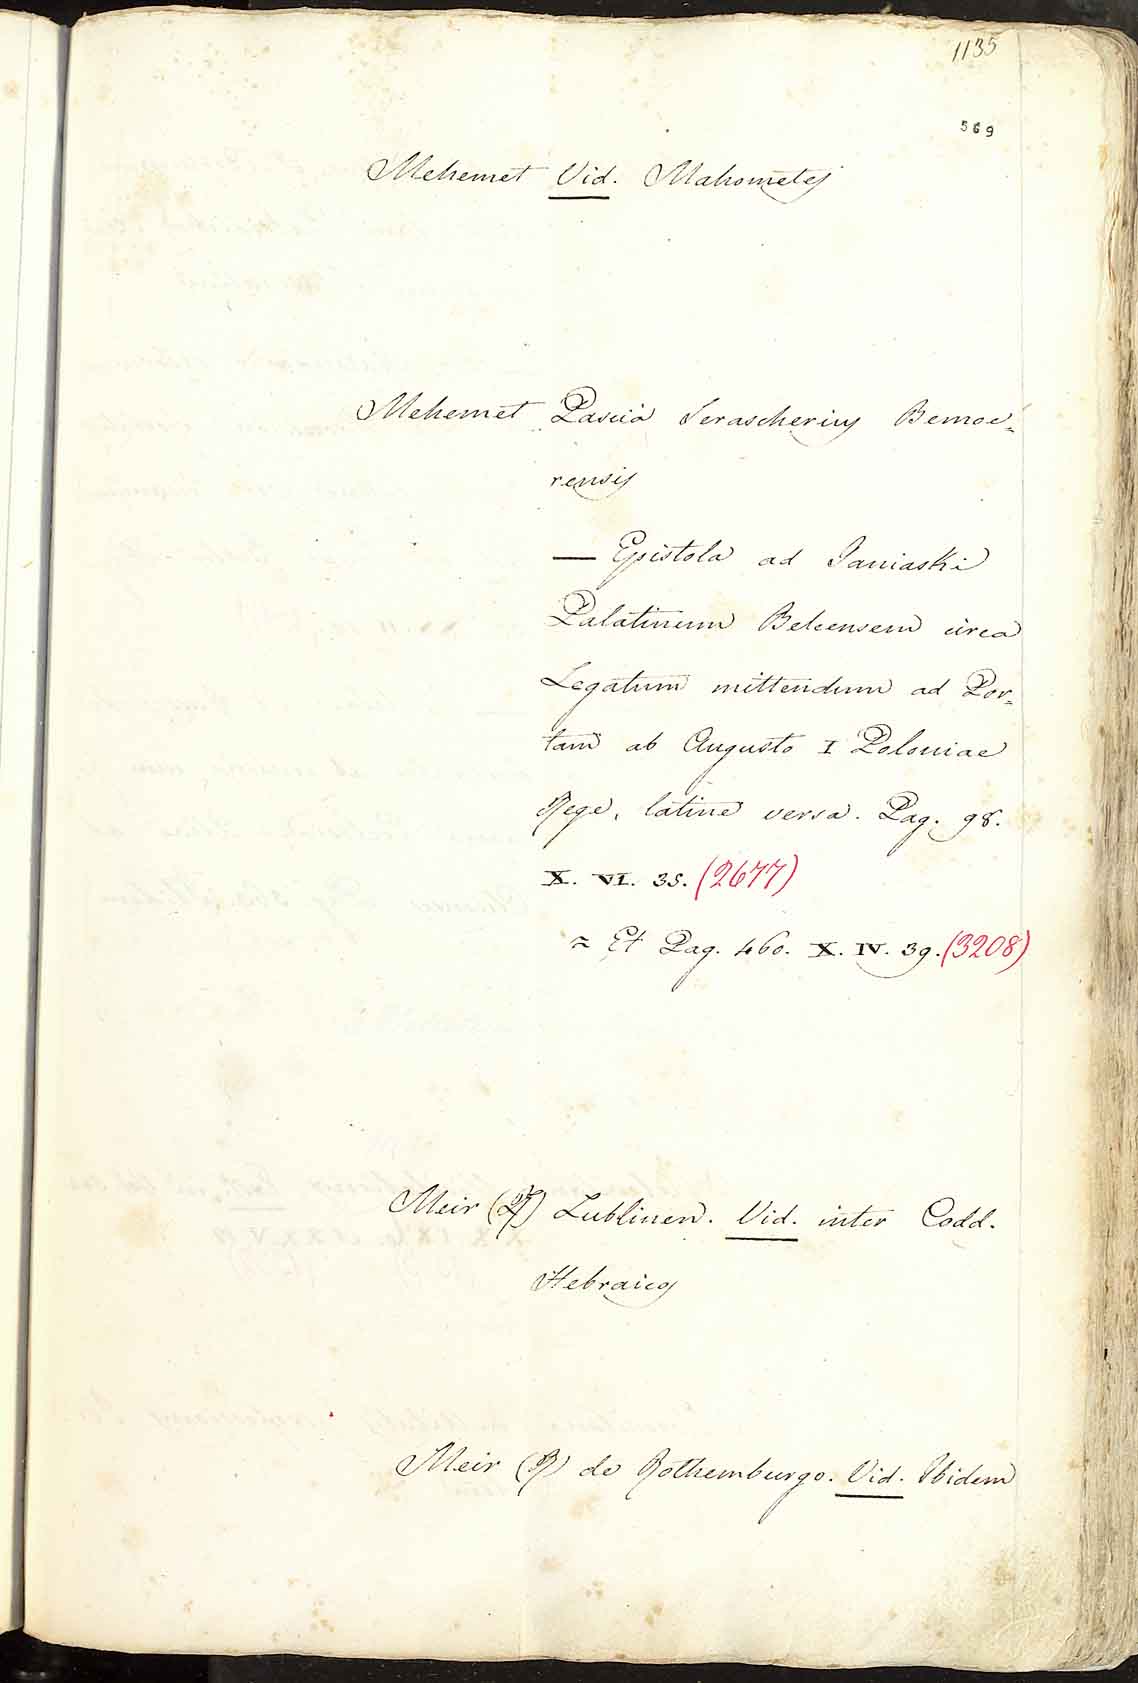 1135
569
Mehemet Vid. Mahometes
Mehemet Pascià Serascherius Bemoe=
rensis
— Epistola ad Janiaski
Palatinum Belcensem circa
Legatum mittendum ad Por=
tam ab Augusto I Poloniae
Rege, latine versa. Pag. 98.
X. VI. 35. (2677)
= Et Pag. 460. X. IV. 39. (3208)
Meir (R) Lublinen. Vid. inter Codd.
Hebraicos
Meir (R) de Rothemburgo. Vid. Ibidem